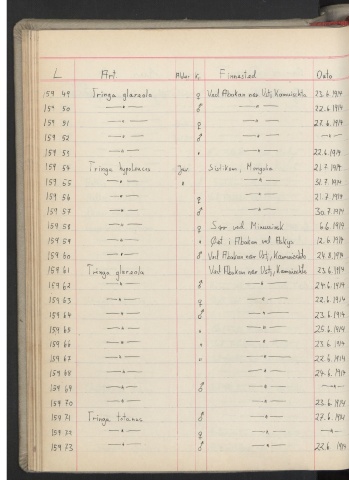 L Art Alder K. Finnested Dato
159 49 Tringa glareola ♀ Ved Abakan nær Ustj, Kamuischta 23.6.1914
159 50 —"— ♂ —"— 22.6.1914
159 51 —"— ♀ —"— 27.6.1914
159 52 —"— ♂ —"— —"—
159 53 —"— " —"— 22.6.1914
159 54 Tringa hypoleucos Juv. Mongolia 21.7.1914
159 55 —"— " —"— 31.7.1914
159 56 —"— ♀ —"— 21.7.1914
159 57 —"— ♂ —"— 30.7.1914
159 58 —"— ♀ Sør ved Minusinsk 6.6.1914
159 59 —"— " Øst i Abakan ved 12.6.1914
159 60 —"— ♂ Ved Abakan nær Ustj, Kamuischta 24.8.1914
159 61 Tringa glareola Ved Abakan nær Ustj, Kamuischta 23.6.1914
159 62 —"— ♂ —"— 24.6.1914
159 63 —"— ♀ —"— 22.6.1914
159 64 —"— ♂ —"— 23.6.1914
159 65 —"— " —"— 25.6.1914
159 66 —"— " —"— 23.6.1914
159 67 —"— " —"— 22.6.1914
159 68 —"— —"— 24.6.1914
159 69 —"— ♂ —"— —"—
159 70 —"— —"— 23.6.1914
159 71 Tringa totanus ♂ —"— 27.6.1914
159 72 —"— ♀ —"— —"—
159 73 —"— ♂ —"— 22.6.1914